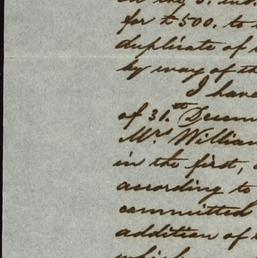 on the 3. ins
for £500. to
duplicate of
by way of th
I have
of 31st Decem
Mrs William
in the first,
according to
committed
addition of
which